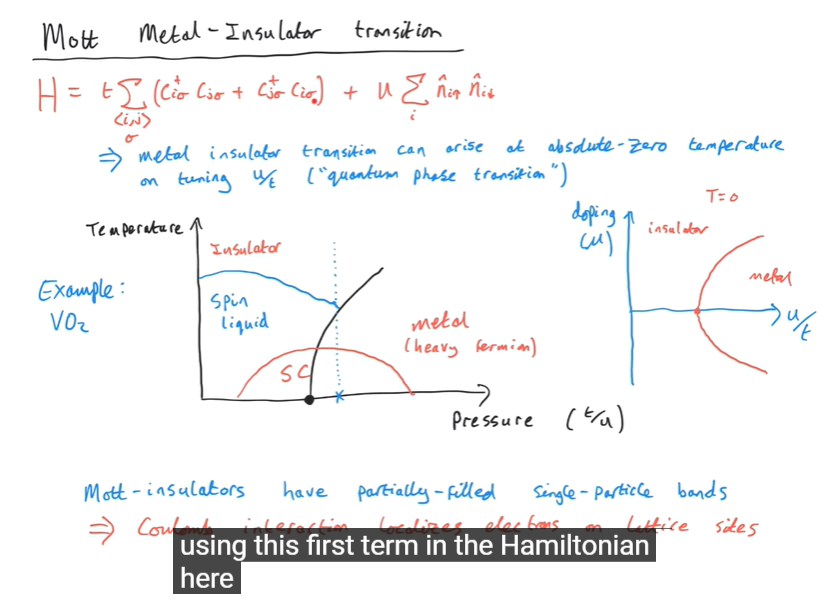 Mott Metal-Insulator transition
H = t Σ (c†iσ cjσ + c†jσ ciσ) + U Σ n̂i↑ n̂i↓
⟨i,j⟩ i
σ
⇒ metal insulator transition can arise at absolute-zero temperature
on tuning U/t ("quantum phase transition")
T=0
doping
(μ)
insulator
metal
U/t
Temperature
Insulator
Example:
VO2
Spin
liquid
metal
(heavy fermion)
SC
Pressure (t/u)
Mott-insulators have partially-filled single-particle bands
⇒ Coulomb interaction localizes electrons on lattice sites
using this first term in the Hamiltonian
here